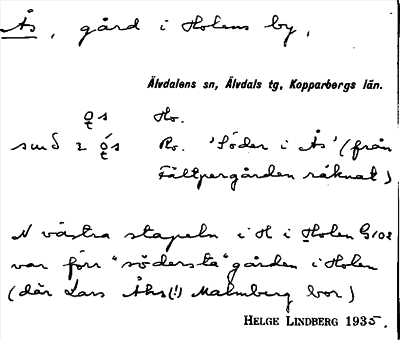 Ås, gård i Holens by,
Älvdalens sn, Älvdals tg, Kopparbergs län.
o̧s Ho.
suð ı ǫ́s Ro. 'Söder i Ås' (från
Fältpergården räknat)
N västra stapeln i H i Holen G102
var förr "södersta" gården i Holen
(där Lars Åhs(!) Malmberg bor)
HELGE LINDBERG 1935.